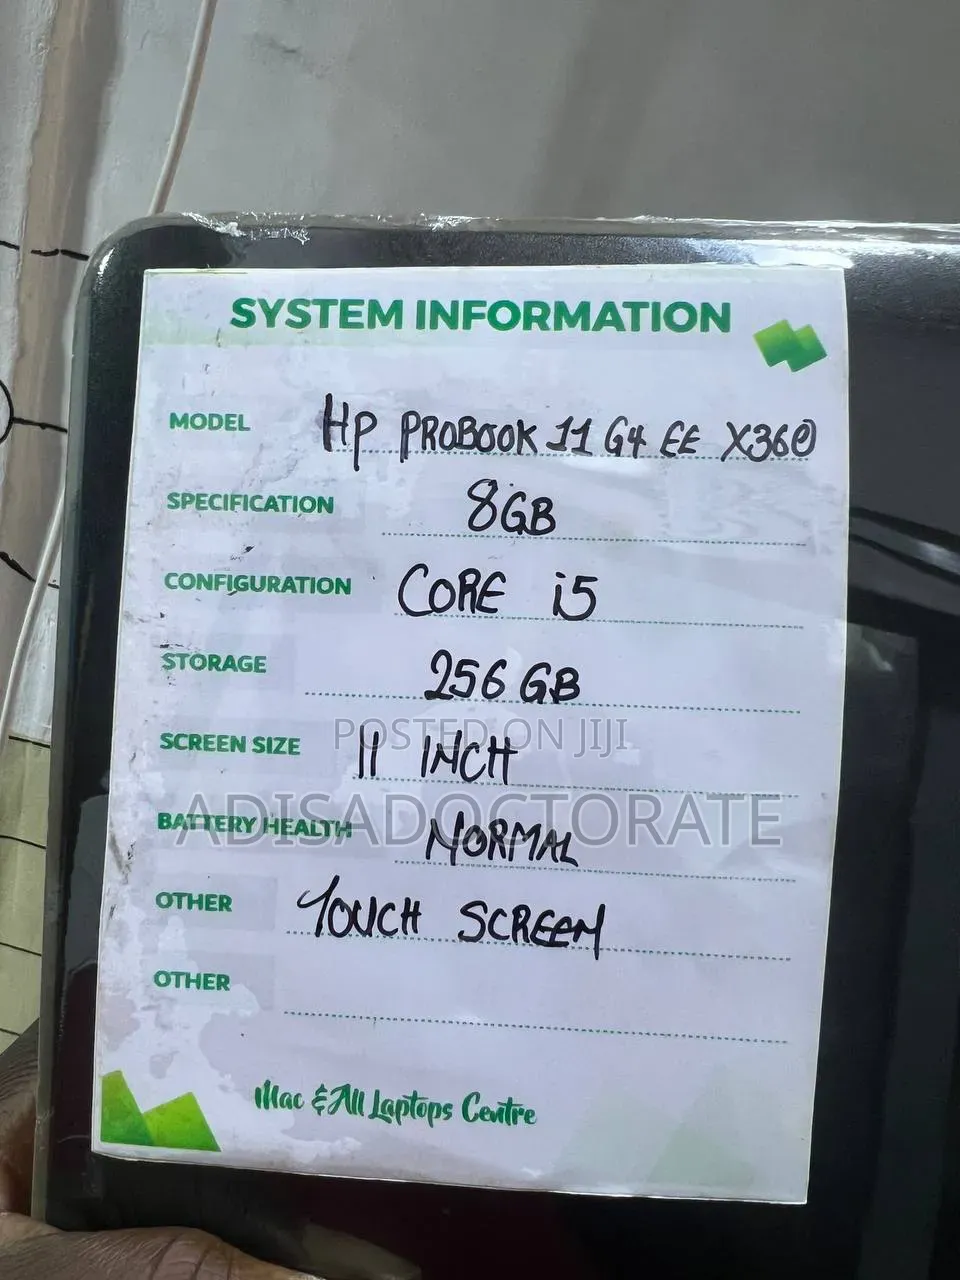 SYSTEM INFORMATION
MODEL HP PROBOOK 11 G4 EE X360
SPECIFICATION 8GB
CONFIGURATION CORE i5
STORAGE 256 GB
POSTED ON JIJI
SCREEN SIZE 11 INCH
ADISADOCTORATE
BATTERY HEALTH NORMAL
OTHER TOUCH SCREEN
OTHER
Mac & All Laptops Centre